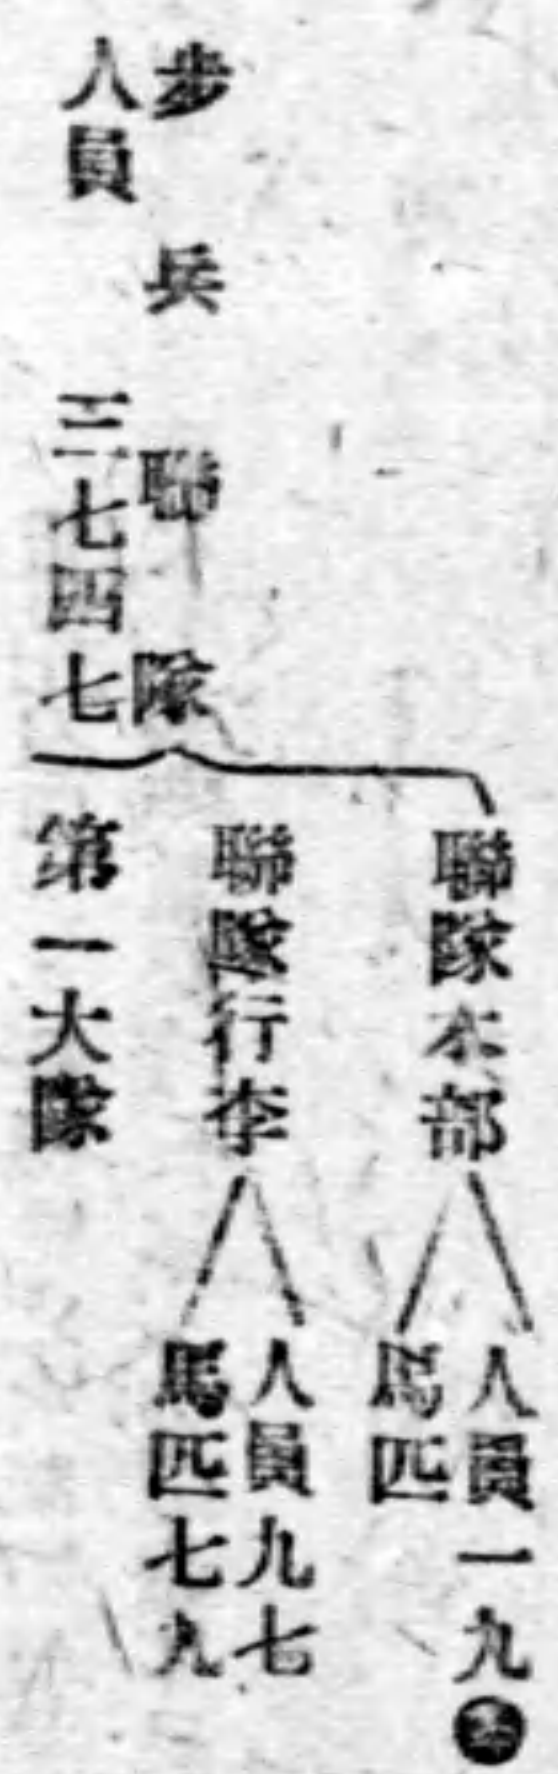 步兵聯隊
人員 三七四七
聯隊本部
人員一九
馬匹
聯隊行李
人員九七
馬匹七九
第一大隊